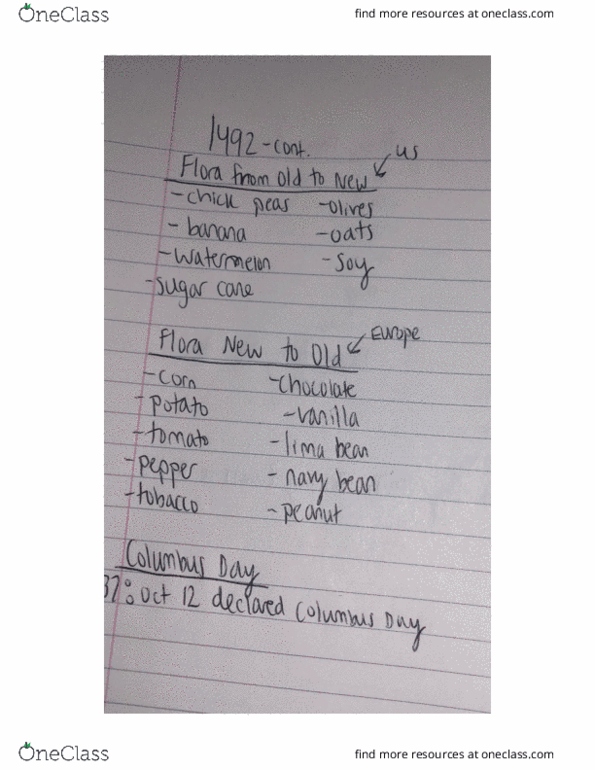 OneClass
find more resources at oneclass.com
1492-cont.
US
Flora from Old to New
-chick peas -olives
-banana -oats
-watermelon -soy
-sugar cane
Europe
Flora New to Old
-corn -chocolate
-potato -vanilla
-tomato -lima bean
-pepper -navy bean
-tobacco -peanut
Columbus Day
37: Oct 12 declared Columbus Day
OneClass
find more resources at oneclass.com